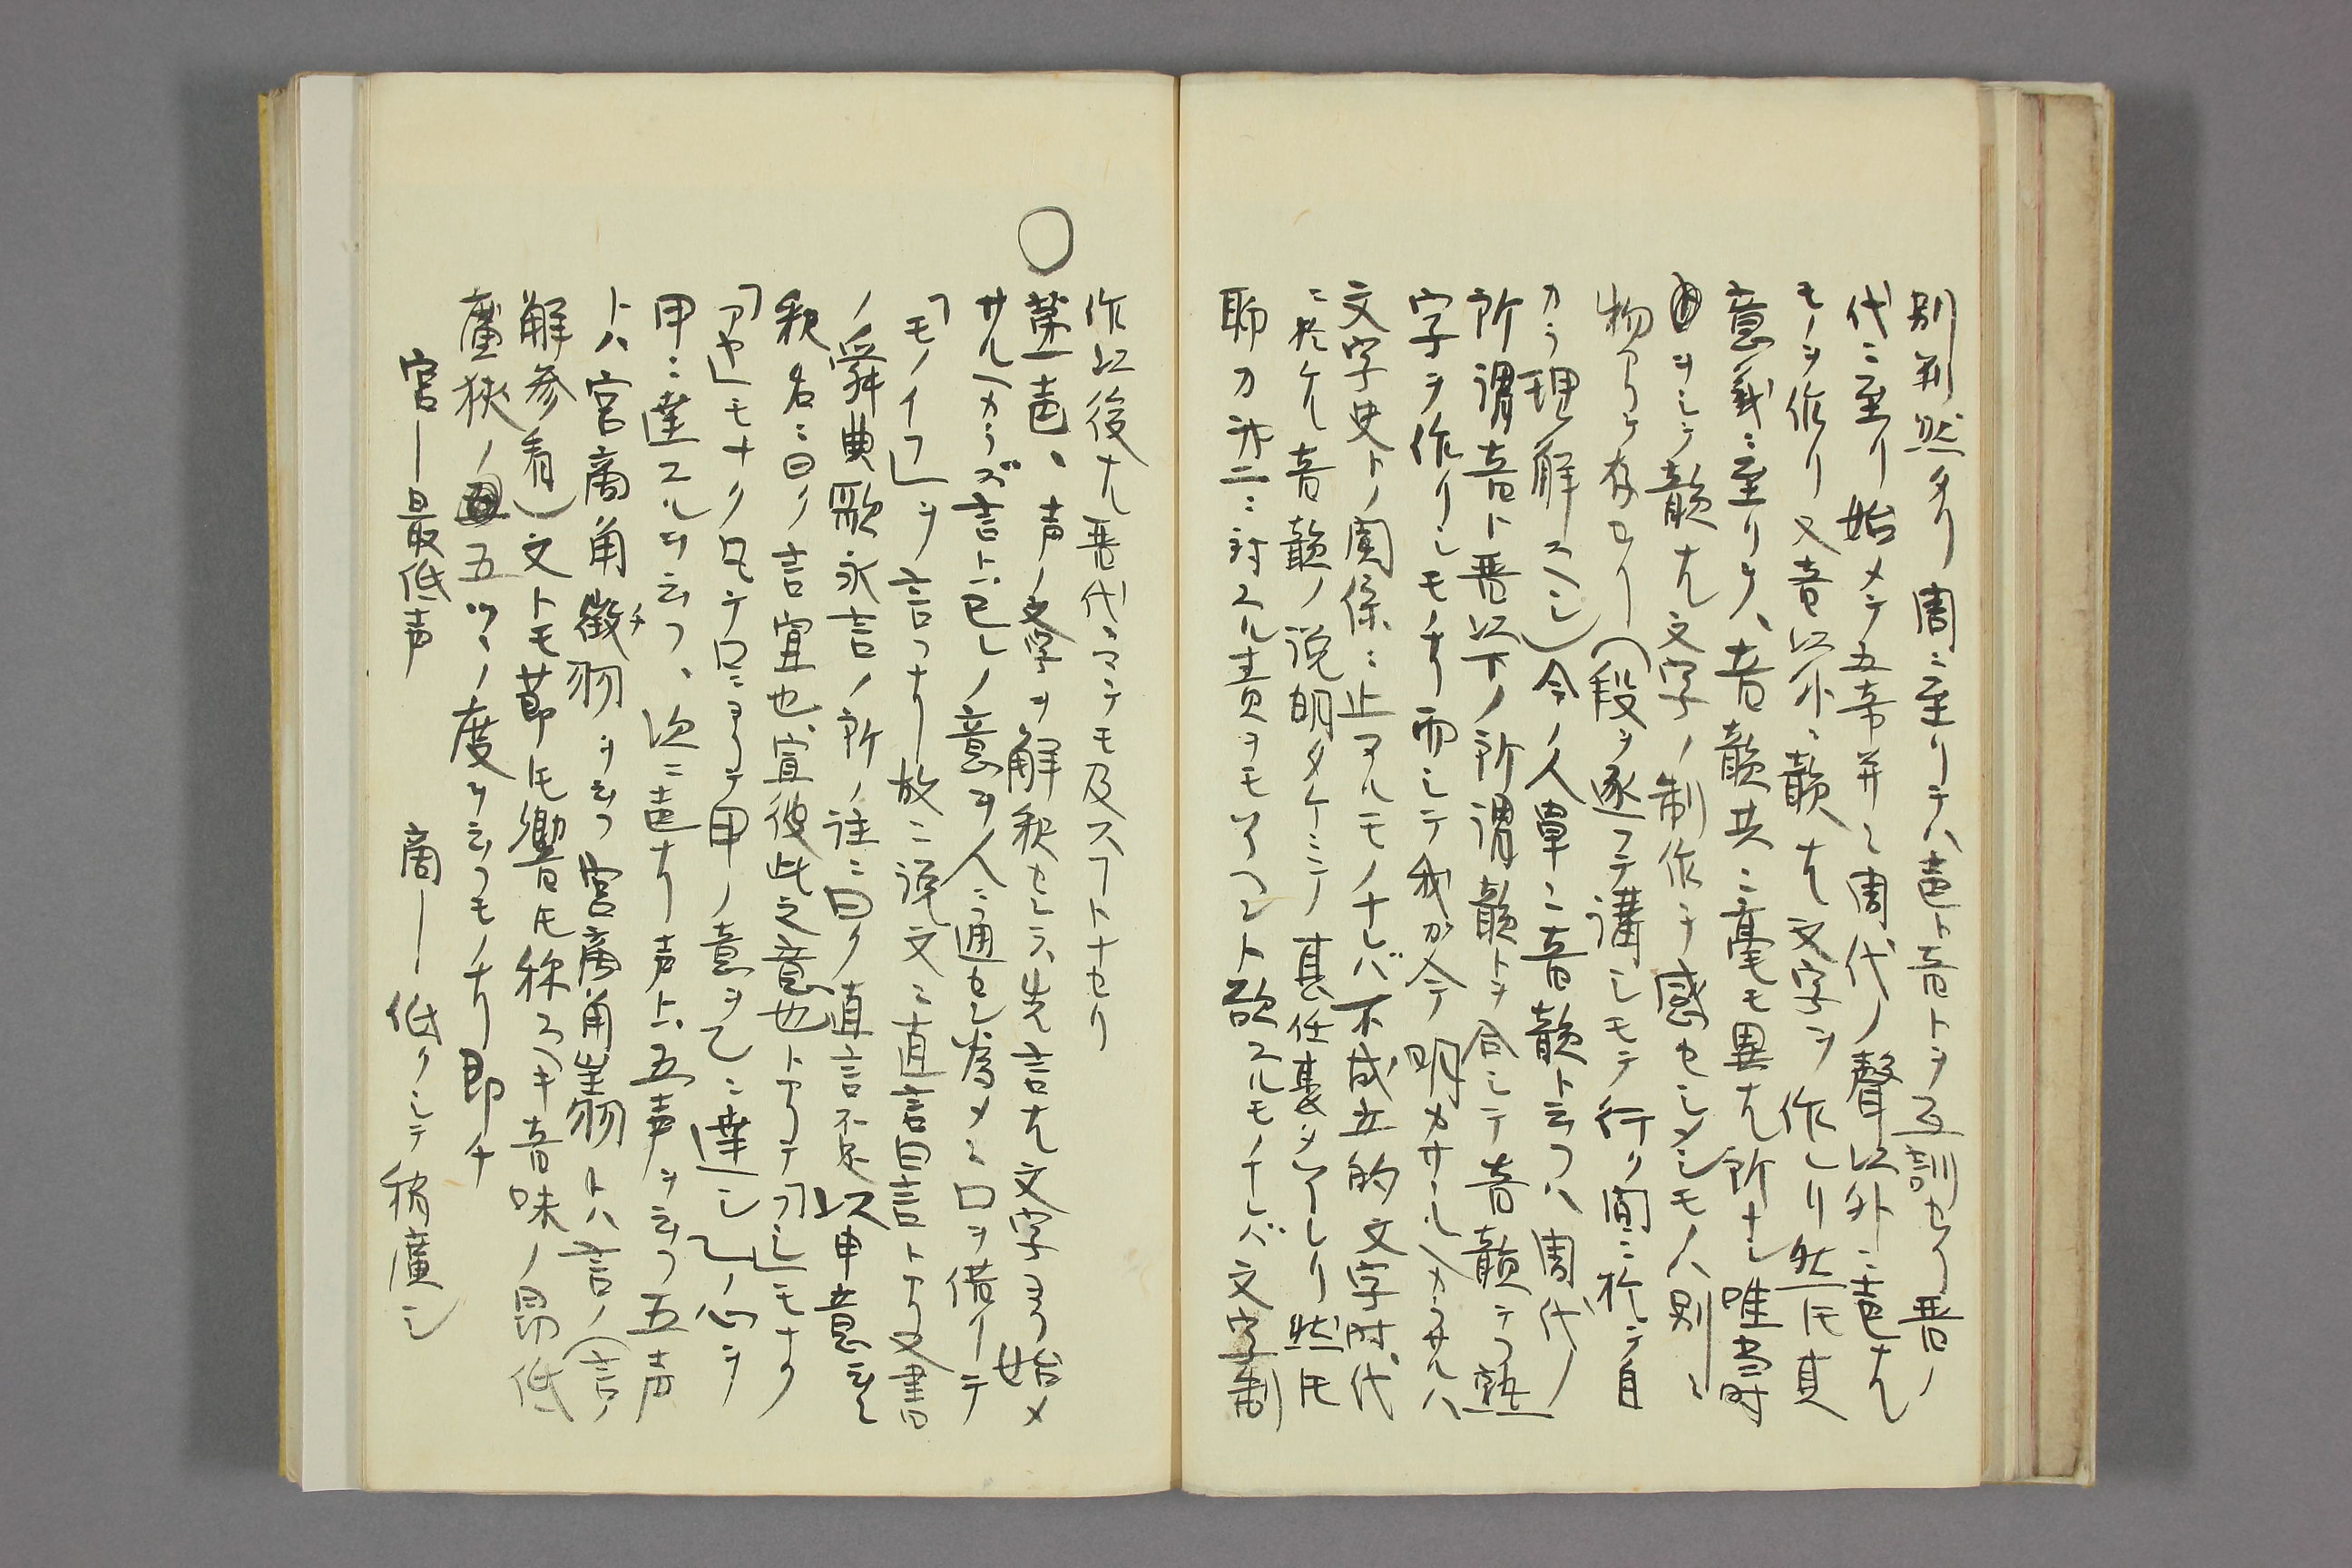 別判然タリ周ニ至リテハ𠶷ト音トヲ互訓セリ晋ノ
代ニ至リ始メテ五帝并ヒ周代ノ聲以外ニ𠶷ナル
モノヲ作リ又音以外ニ韻ナル文字ヲ作レリ然トモ其
意義ニ至リテハ音韻共ニ毫モ異ナル所ナシ唯当時
ヲシテ韻ナル文字ノ制作ヲ感セシメシモノハ別ニ
物アリテ存セリ(段ヲ逐フテ講シモテ行ク間ニ於テ自
カラ理解スヘシ)今ノ人単ニ音韻ト云フハ周代ノ
所謂音ト晋以下ノ所謂韻トヲ合シテ音韻テフ熟
字ヲ作リシモノナリ而シテ我が今明カサヽルヘカラサルハ
文字史トノ関係ニ止マルモノナレバ不成立的文字時代
ニ於ケル音韻ノ説明タケニテ其任務ヲ了レリ然トモ
聊カ第二ニ対スル責ヲモ了ヘント欲スルモノナレバ文字制
作以後ナル晋代マテモ及スコトトナセリ
○第一𠶷、声ノ文字ヲ解釈セシニハ先言ナル文字ヨリ始メ
サルヘカラズ言トハ己レノ意ヲ人ニ通セン為メニ口ヲ借リテ
「モノイフ」ヲ言フナリ故ニ説文ニ直言曰言トアリ又書
ノ舜典歌永言ノ所ノ註ニ曰ク直言不足以申意云々
釈名ニ曰ク言宣也、宣彼此之意也トアリテ「フシ」モナク
「アヤ」モナク只テ口ニヨリテ甲ノ意ヲ乙ニ達シ乙ノ心ヲ
甲ニ達スルヲ云フ、次ニ𠶷ナリ声トハ五声ヲ云フ五声
トハ宮商角徴羽ヲ云フ宮商角徴羽トハ言ノ(言ノ
解参看)文トモ節トモ響トモ称スヘキ音味ノ昂低
廣狭ノ五ツノ度ヲ云フモノナリ即チ
宮―最低声　商―低クシテ稍廣シ